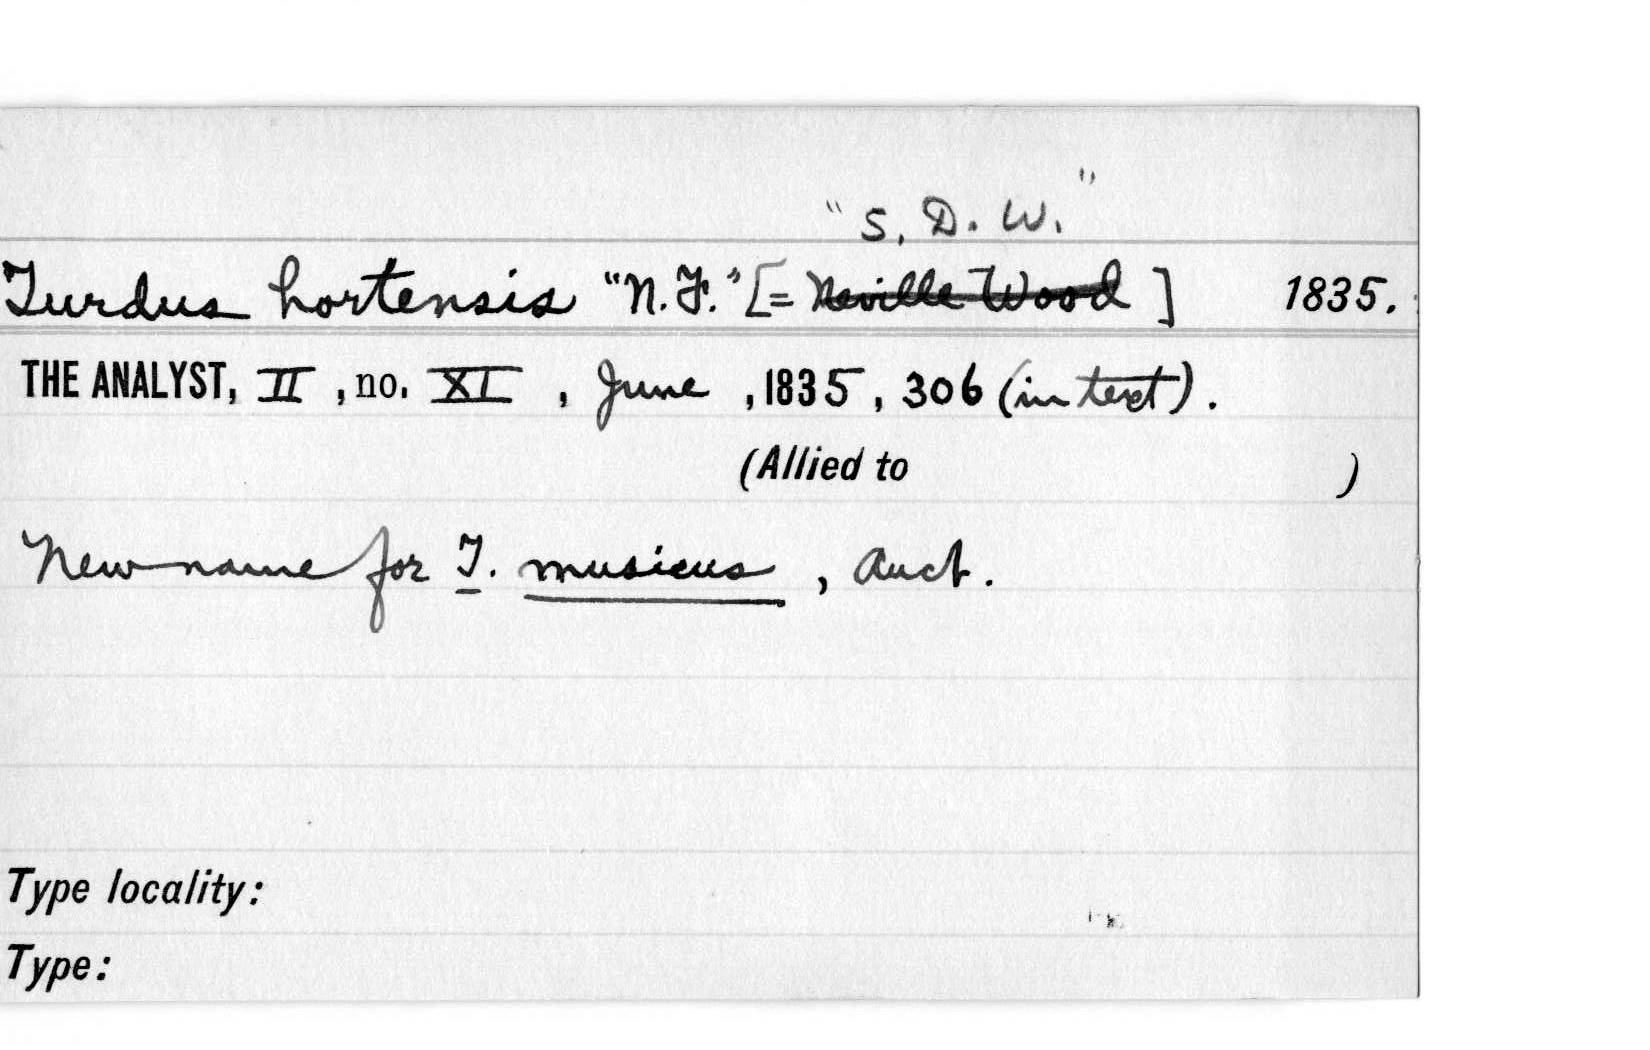 "S. D. W."
Turdus hortensis "N.F." [= Neville Wood] 1835.
THE ANALYST, II, no. XI, June, 1835, 306 (in text).
(Allied to )
New name for T. musicus, Auct.
Type locality:
Type: